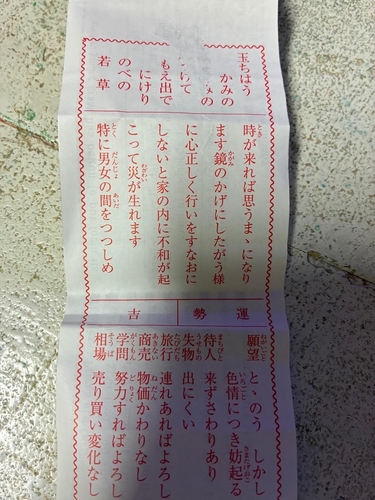 玉ちはう
かみの
みの
けて
もえ出で
にけり
のべの
若草
時が来れば思うまゝになり
ます鏡のかげにしたがう様
に心正しく行いをすなおに
しないと家の内に不和が起
こって災が生れます
特に男女の間をつつしめ
運勢
吉
願望 とゝのう しかし
色情につき妨起る
待人 来ずさわりあり
失物 出にくい
旅行 連れあればよろし
商売 物価かわりなし
学問 努力すればよろし
相場 売り買い変化なし